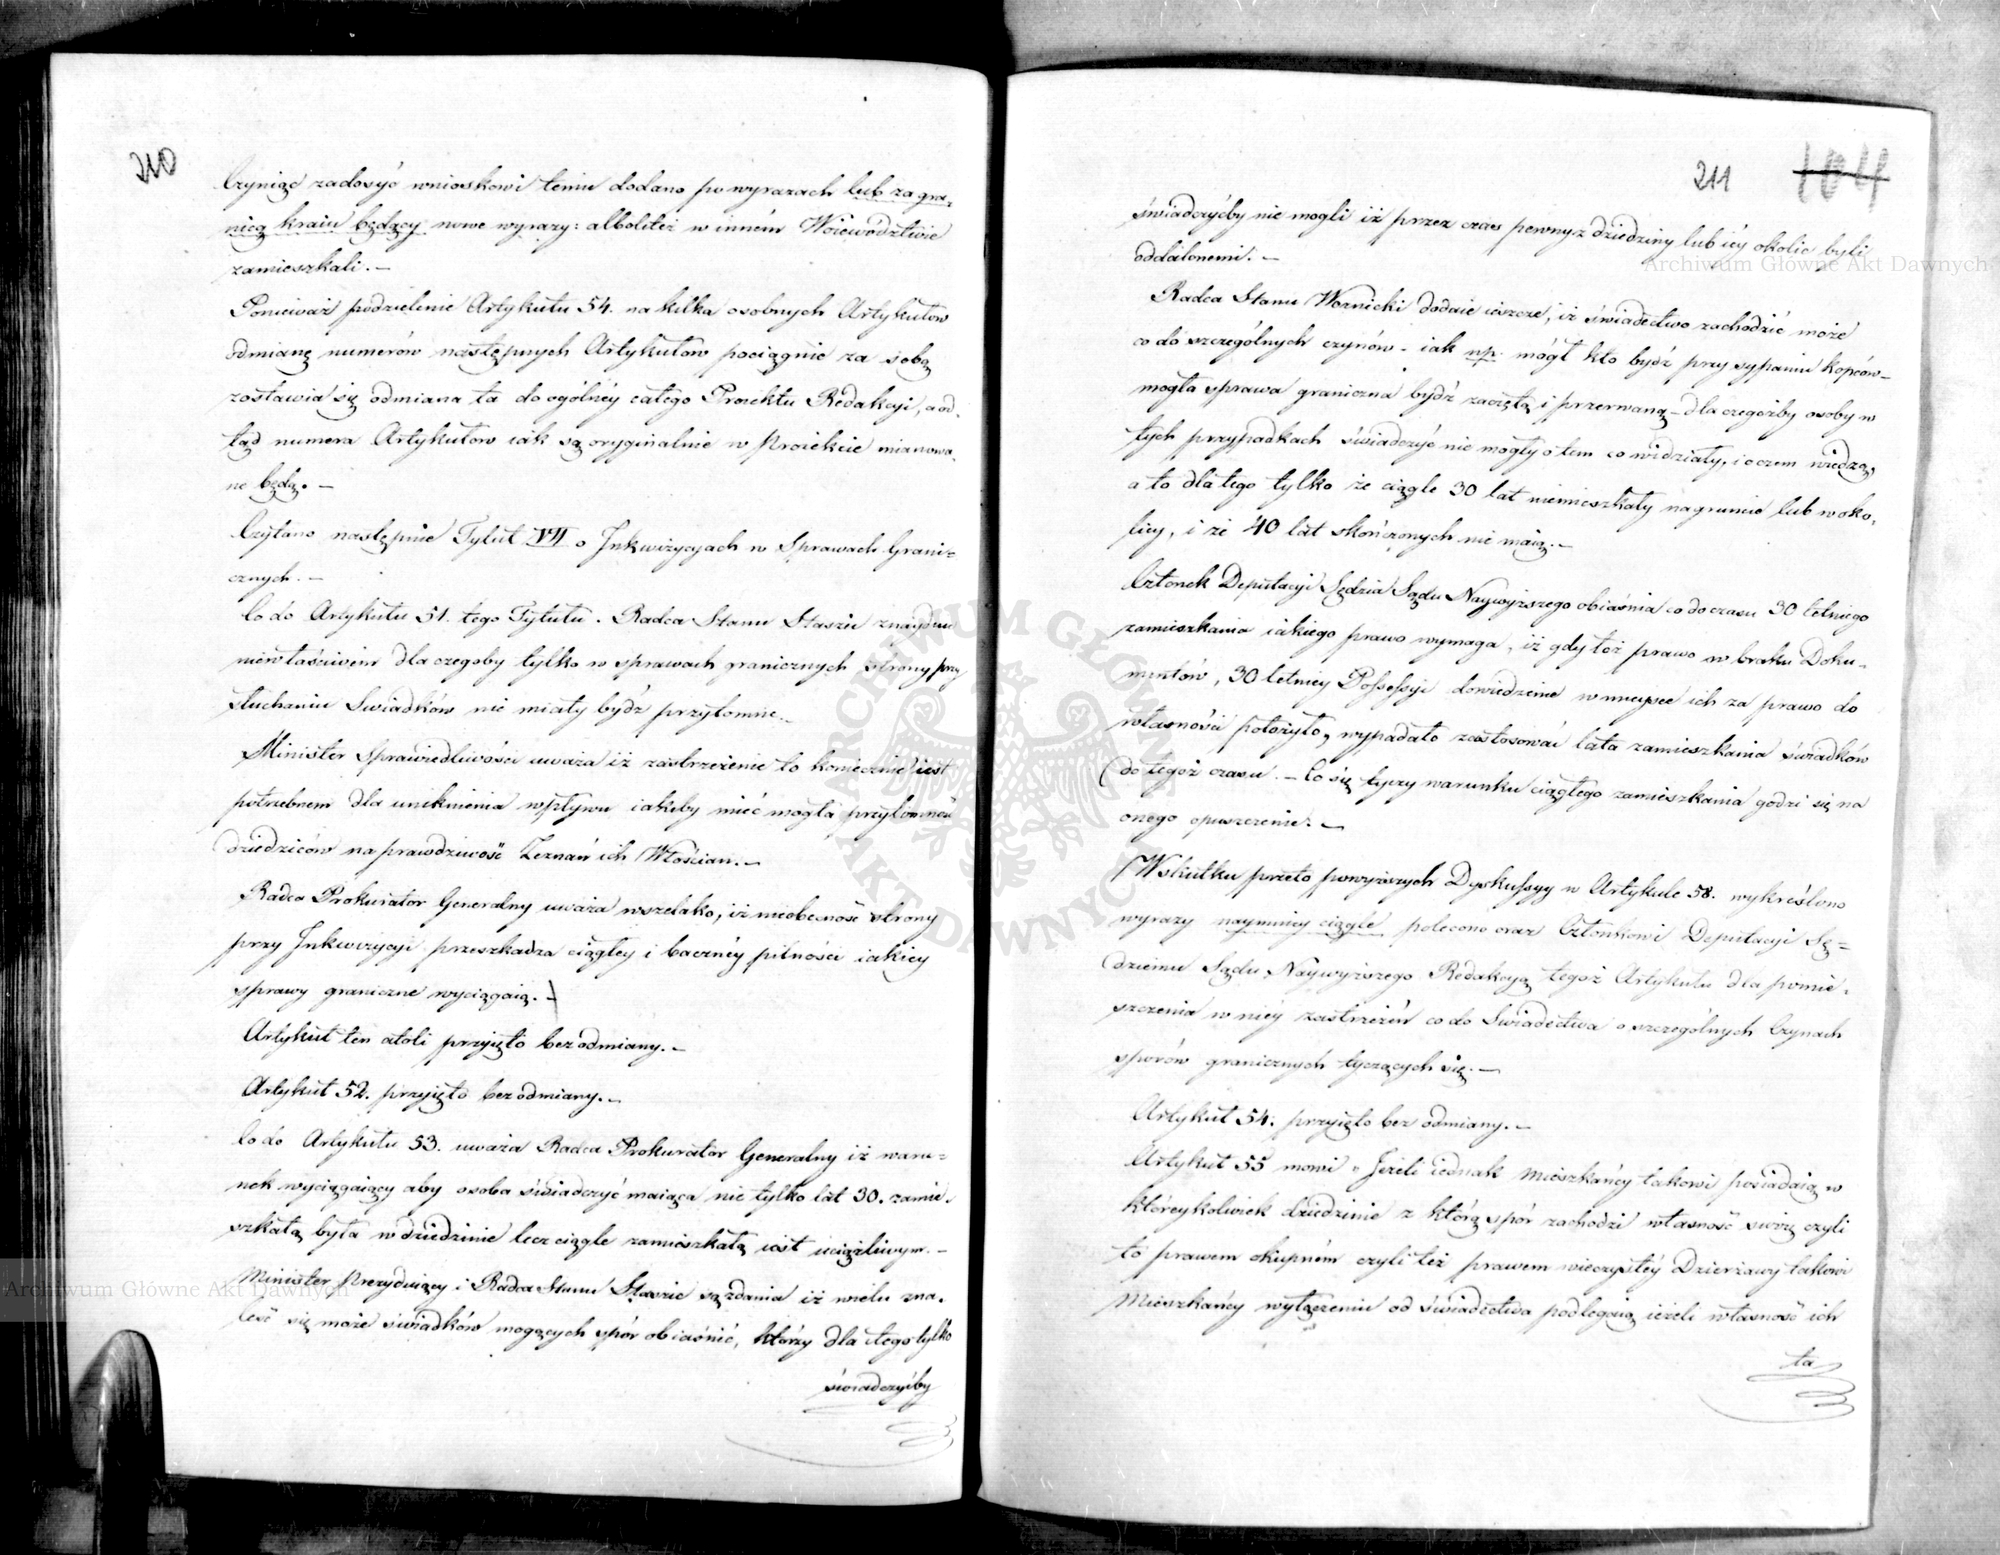 210
Czyniąc zadosyć wnioskowi temu dodano po wyrazach lub za gra-
nicą kraiu będący nowe wyrazy: albo liteż w inném Woiewództwie
zamieszkali. –
Ponieważ podzielenie Artykułu 54. na kilka osobnych Artykułów
odmianę numerów następnych Artykułów pociągnie za sobą
zostawia się odmiana ta do ogólnéy całego Proiektu Redakcyi, a od-
tąd numera Artykułów iak są oryginalnie w Proiekcie mianowa-
ne będą. –
Czytano następnie Tytuł VII o Inkwizycyach w Sprawach Grani-
cznych. –
Co do Artykułu 51. tego Tytułu. Radca Stanu Staszic znayduie
niewłaściwém dla czegoby tylko w sprawach granicznych strony przy
słuchaniu Swiadków nie miały bydź przytomne. –
Minister Sprawiedliwości uważa iż zastrzeżenie to koniecznie iest
potrzebnem dla uniknienia wpływu iakiby mieć mogła przytomność
dziedziców na prawdziwość Zeznań ich Włościan. –
Radca Prokurator Generalny uważa wszelako, iż nieobecność strony
przy Inkwizycyi przeszkadza ciągłey i bacznéy pilności iakiey
sprawy graniczne wyciągaią. –
Artykuł ten atoli przyięto bez odmiany. –
Artykuł 52. przyięto bez odmiany. –
Co do Artykułu 53. uważa Radca Prokurator Generalny iż waru-
nek wyciągaiący aby osoba świadczyć maiąca nie tylko lat 30. zamie-
szkałą była w dziedzinie lecz ciągle zamieszkałą iest uciążliwym. –
Minister Prezyduiący i Radca Stanu Staszic są zdania iż wielu zna-
leść się może świadków mogących spór obiaśnić, którzy dla tego tylko
świadczyćby
211
104
świadczyćby nie mogli iż przez czas pewny z dziedziny lub iéy okolic byli
oddalonemi. –
Radca Stanu Woznicki dodaie ieszcze, iż świadectwo zachodzić może
co do szczególnych czynów – iak np. mógł kto bydź przy sypaniu kopców –
mogła sprawa graniczna bydź zaczętą i przerwaną – dla czegożby osoby w
tych przypadkach świadczyć nie mogły o tem co widziały, i o czem wiedzą,
a to dla tego tylko że ciągle 30 lat niemieszkały na gruncie lub w oko-
licy, i że 40 lat skończonych nie maią. –
Członek Deputacyi Sędzia Sądu Naywyższego obiaśnia co do czasu 30 letniego
zamieszkania iakiego prawo wymaga, iż gdy toż prawo w braku Doku-
mentów, 30 letniey Possessyi dowiedzenie w mieysce ich za prawo do
własności położyło, wypadało zastosować lata zamieszkania świadków
do tegoż czasu. – Co się tyczy warunku ciągłego zamieszkania godzi się na
onego opuszczenie. –
Wskutku przeto powyższych Dyskussyy w Artykule 58. wykreślono
wyrazy naymniey ciągle polecono oraz Członkowi Deputacyi Sę-
dziemu Sądu Naywyższego Redakcyą tegoż Artykułu dla pomie-
szczenia w niéy zastrzeżeń co do Swiadectwa o szczególnych Czynach
sporów granicznych tyczących się. –
Artykuł 54. przyięto bez odmiany. –
Artykuł 55 mówi „Jeżeli iednak mieszkańcy takowi posiadaią w
któreykolwiek dziedzinie z którą spór zachodzi własność swoię czyli
to prawem okupném czyli też prawem wieczystéy Dzierżawy takowi
Mieszkańcy wyłączeniu od świadectwa podlegaią ieżeli własność ich
ta
Archiwum Główne Akt Dawnych
Archiwum Główne Akt Dawnych
ARCHIWUM GŁÓWNE AKT DAWNYCH